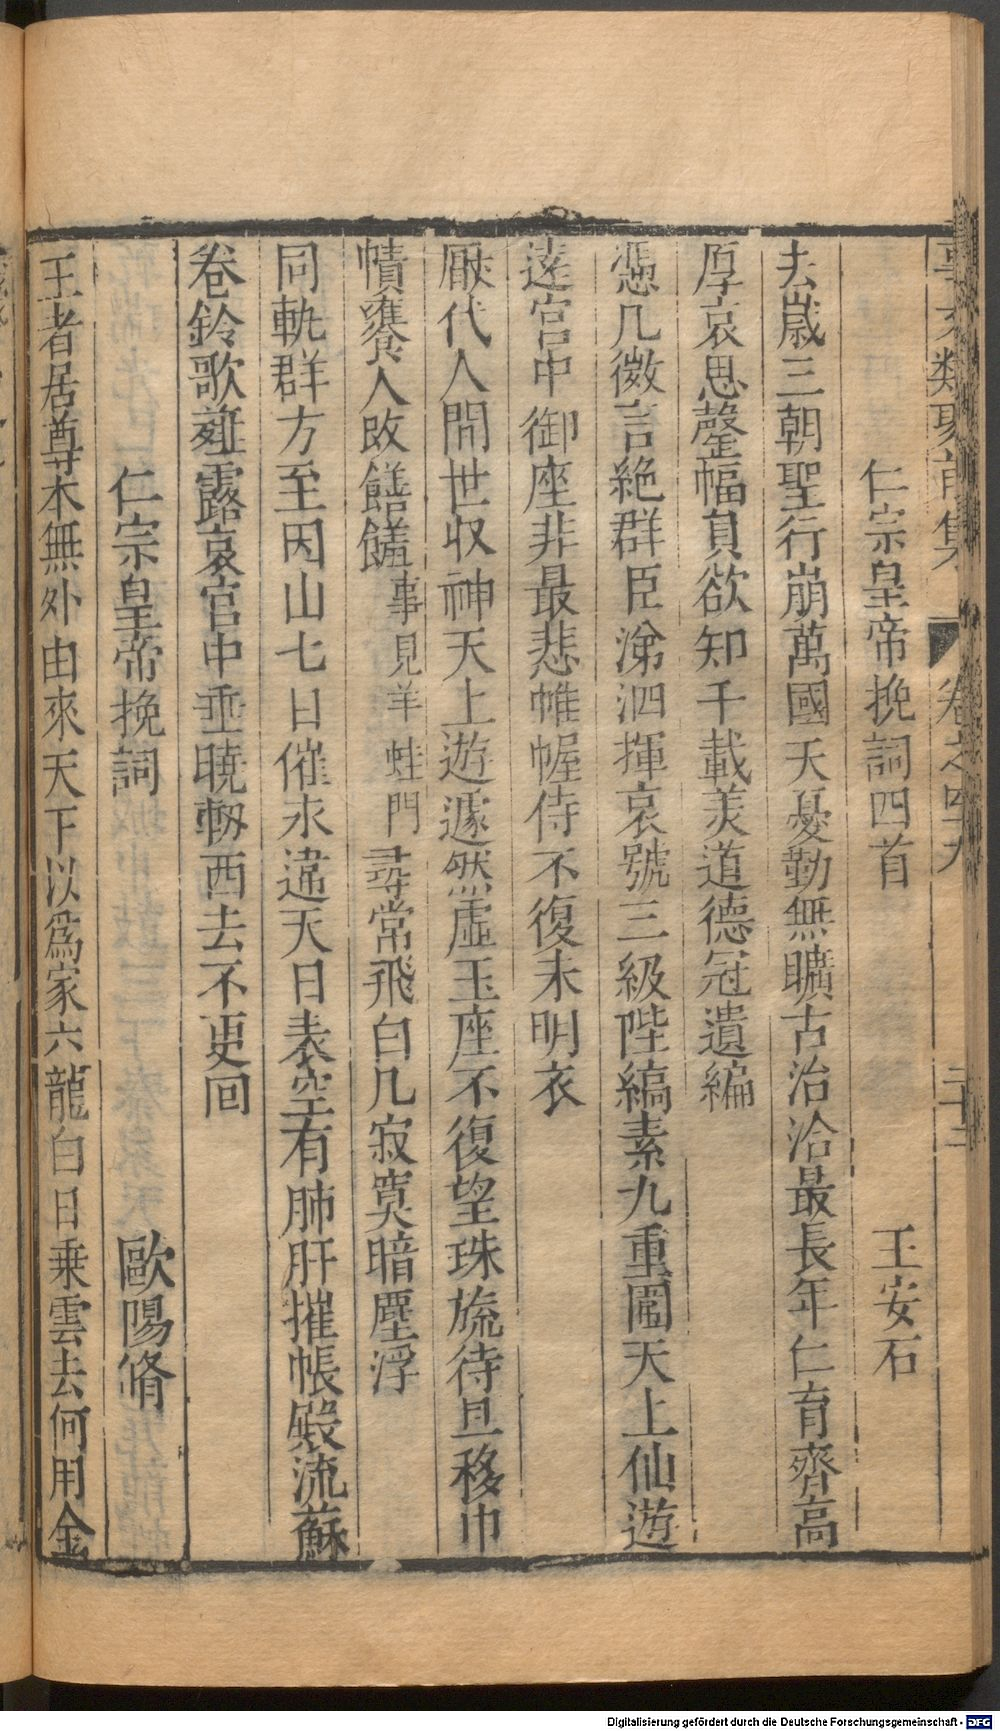 事文類聚前集 卷之四九 二十三
仁宗皇帝挽詞四首 王安石
去歲三朝聖行崩萬國天憂勤無曠古治洽最長年仁育齊高
厚哀思罄幅員欲知千載美道德冠遺編
憑几微言絕群臣涕泗揮哀號三級陛縞素九重闈天上仙遊
遠宮中御座非最悲帷幄侍不復未明衣
厭代人間世收神天上遊遽然虛玉座不復望珠旒待旦移巾
幘饔人改饍饈事見羊蛙門尋常飛白几寂寞暗塵浮
同軌群方至因山七日催永違天日表空有肺肝摧帳殿流蘇
卷鈴歌薤露哀宮中垂曉軔西去不更回
仁宗皇帝挽詞 歐陽脩
王者居尊本無外由來天下以爲家六龍白日乗雲去何用金
Digitalisierung gefördert durch die Deutsche Forschungsgemeinschaft - DFG